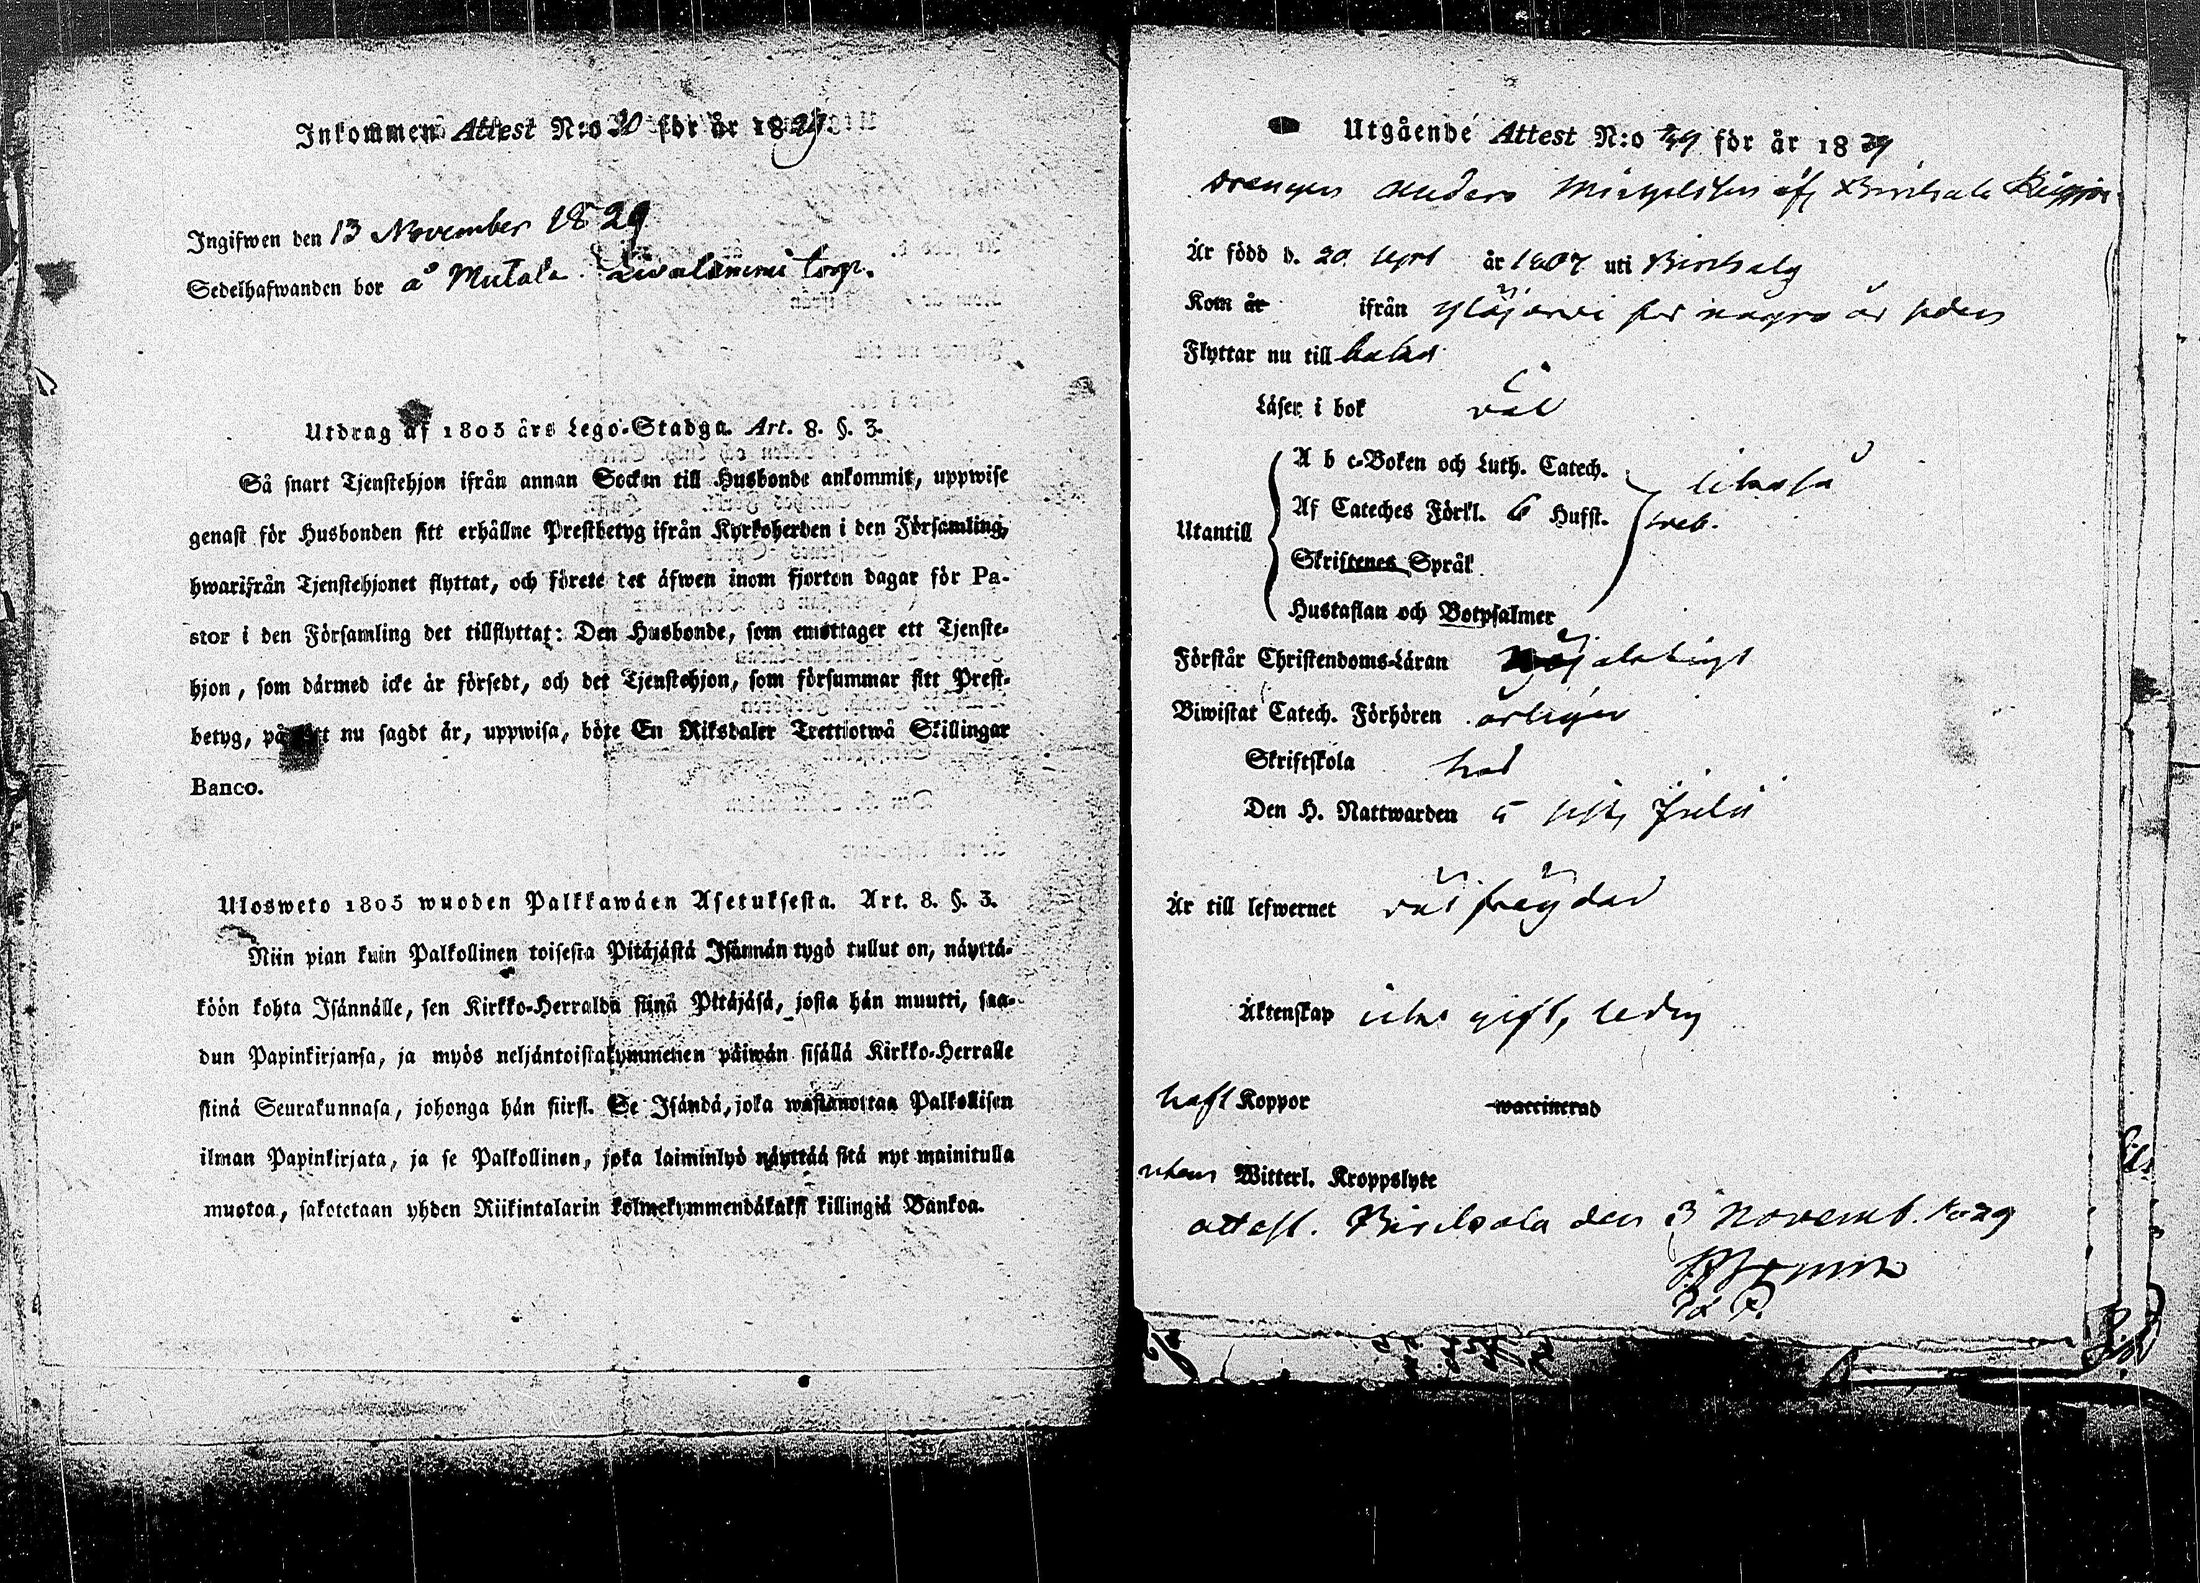 Inkommen Attest N:o 20 för år 1829
Ingifwen den 13 November 1829
Sedelhafwanden bor å Mutala torp.
Utdrag af 1805 års Lego-Stadga. Art. 8. §. 3.
Så snart Tjenstehjon ifrån annan Socken till Husbonde ankommit, uppwise
genast för Husbonden sitt erhållne Prestbetyg ifrån Kyrkoherden i den Församling,
hwarifrån Tjenstehjonet flyttat, och förete det äfwen inom fjorton dagar för Pa-
stor i den Församling det tillflyttat: Den Husbonde, som emottager ett Tjenste-
hjon, som därmed icke är försedt, och det Tjenstehjon, som försummar sitt Prest-
betyg, på sätt nu sagdt är, uppwisa, böte En Riksdaler Trettiotwå Skillingar
Banco.
Ulosweto 1805 wuoden Palkkawäen Asetuksesta. Art. 8. §. 3.
Niin pian kuin Palkollinen toisesta Pitäjästä Isännän tygö tullut on, näyttä-
köön kohta Isännälle, sen Kirkko-Herralda siinä Pitäjäsä, josta hän muutti, saa-
dun Papinkirjansa, ja myös neljäntoistakymmenen päiwän sisällä Kirkko-Herralle
siinä Seurakunnasa, johonga hän siirst. Se Isändä, joka wastanottaa Palkollisen
ilman Papinkirjata, ja se Palkollinen, joka laiminlyö näyttää sitä nyt mainitulla
muotoa, sakotetaan yhden Riikintalarin kolmekymmendäkaksi killingiä Bankoa.
Utgående Attest N:o 49 för år 1829
Drengen Anders af Birkala
Är född d. 20 Sept år 1807 uti Birkala
Kom år ifrån Ylöjärvi för några år sedan
Flyttar nu till
Läser i bok väl
A b c-Boken och Luth. Catech.
Af Cateches Förkl. 6 Husst.
Utantill
Skriftenes Språk
Hustaflan och Botpsalmer
likaså
Förstår Christendoms-Läran nöjaktigt
Biwistat Catech. Förhören årligen
Skriftskola
Den H. Nattwarden Julii
Är till lefwernet väl frägdad
Äktenskap icke gift, ledig
haft Koppor waccinerad
utan Witterl. Kroppslyte
attest. Birkala den 3 Novemb. 1829